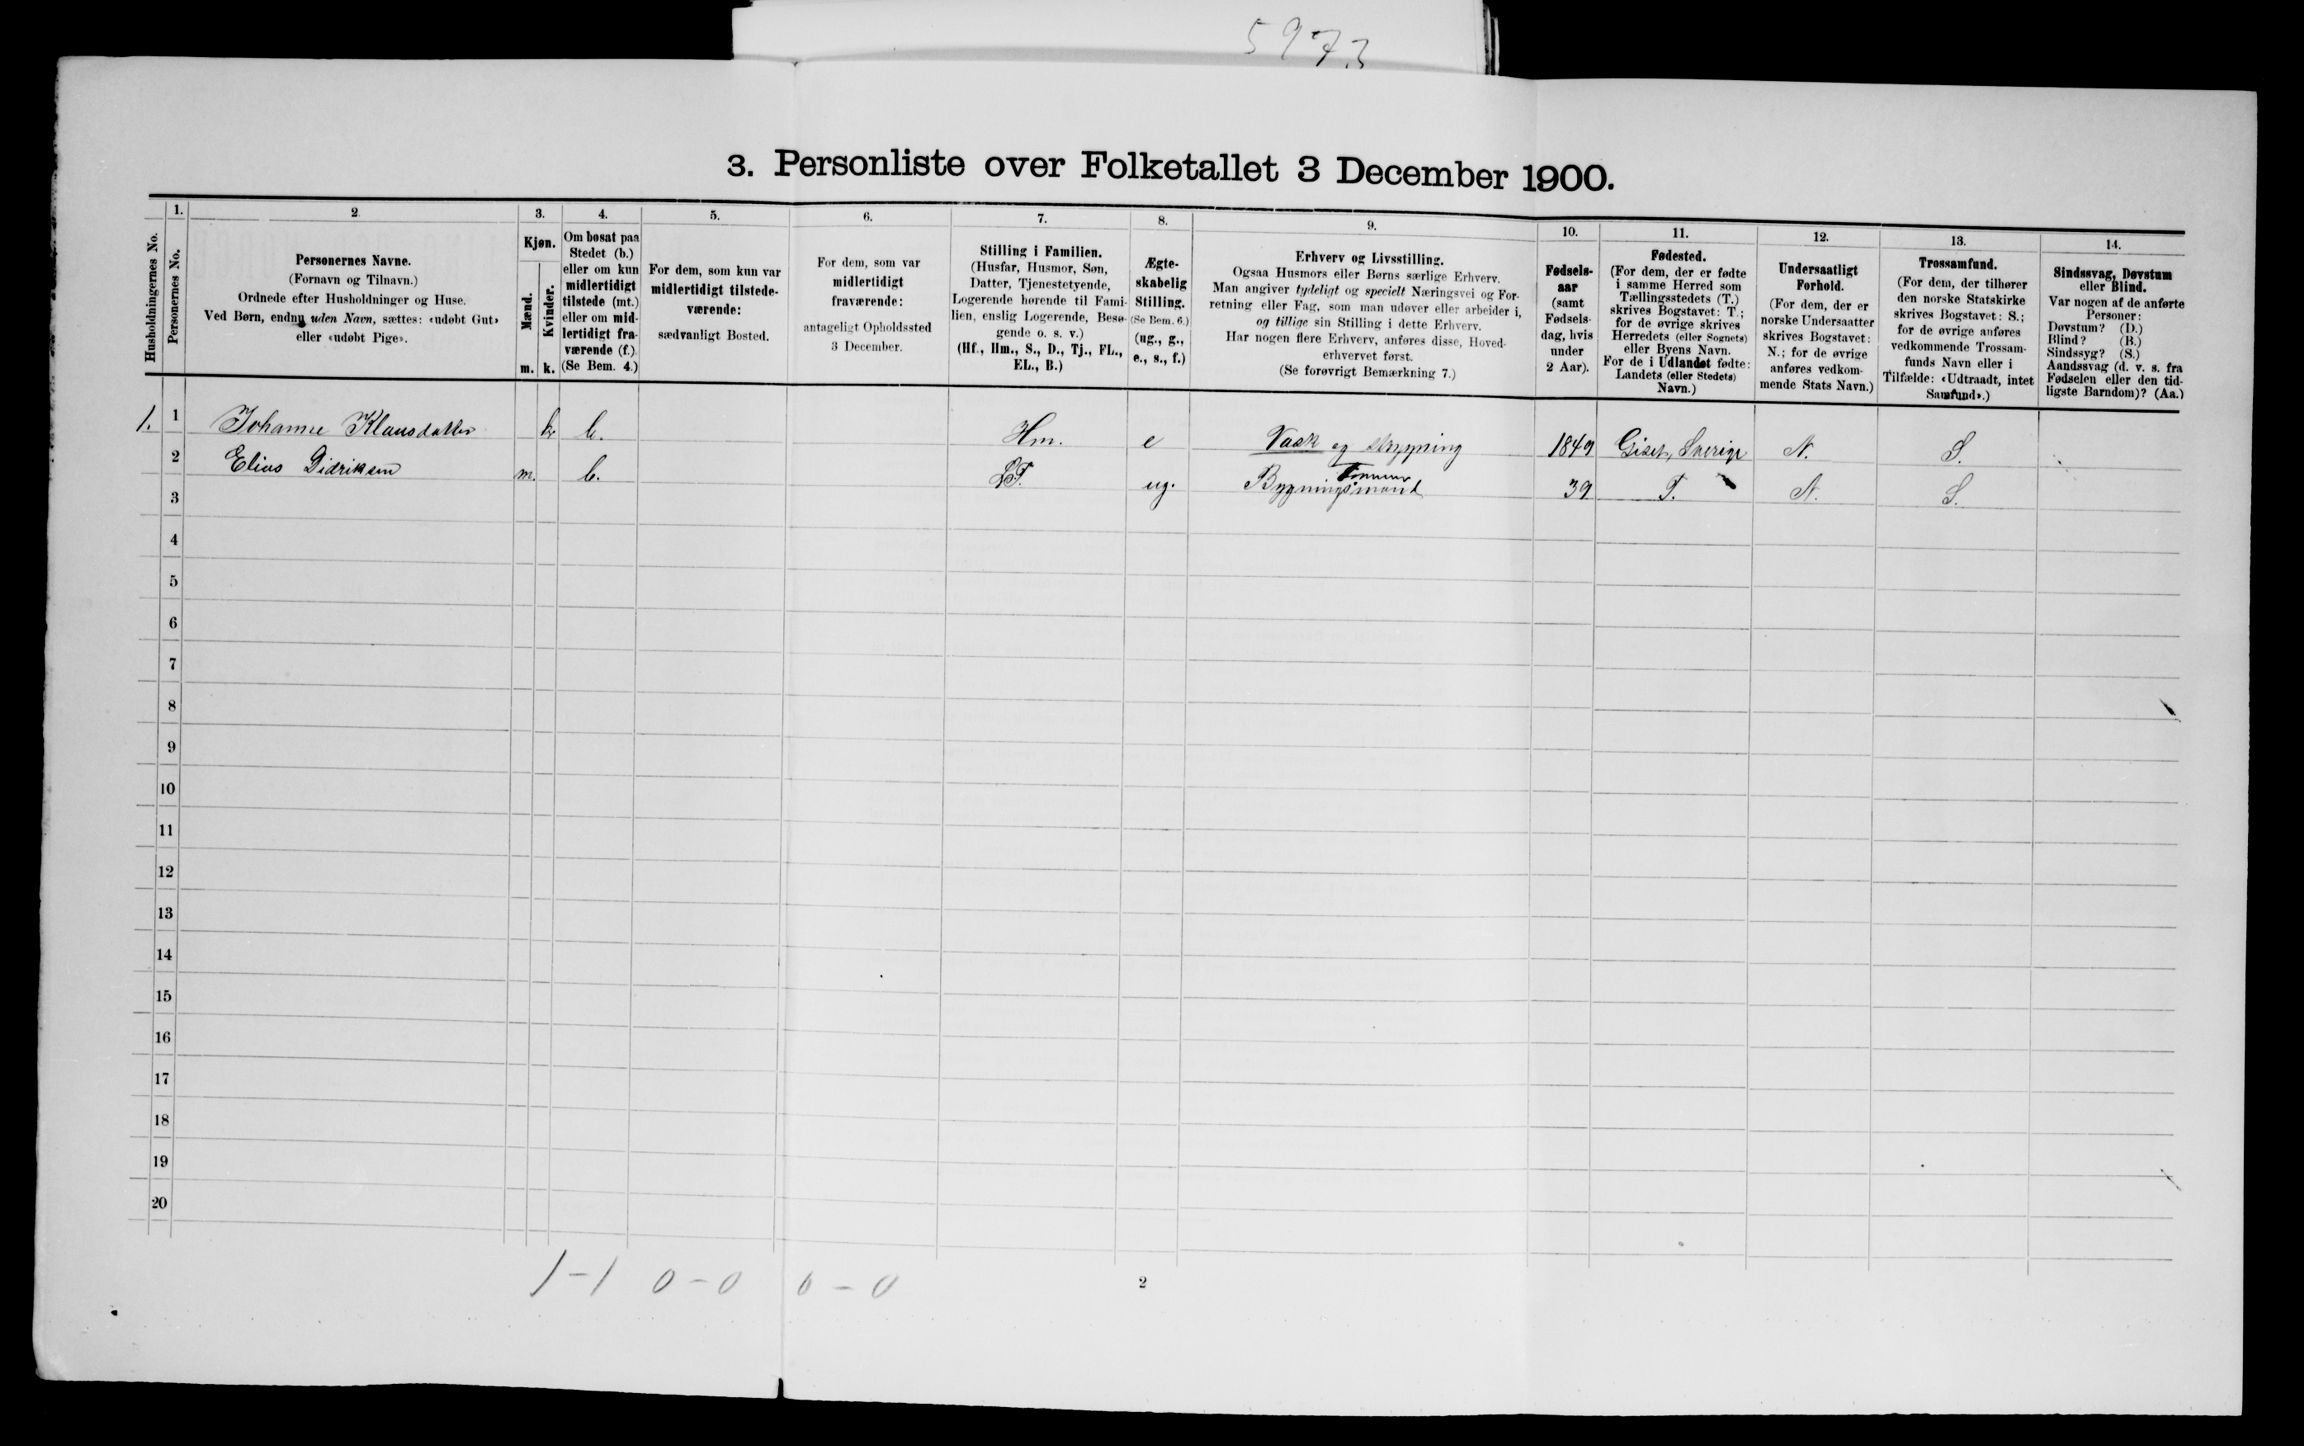 5973
3. Personliste over Folketallet 3 December 1900.
Husholdningernes No.
1.
Personernes No.
2.
Personernes Navne.
(Fornavn og Tilnavn.)
Ordnede efter Husholdninger og Huse.
Ved Børn, endnu uden Navn, sættes: «udøbt Gut»
eller «udøbt Pige».
3.
Kjøn.
Mænd.
Kvinder.
m. k.
4.
Om bosat paa
Stedet (b.)
eller om kun
midlertidigt
tilstede (mt.)
eller om mid-
lertidigt fra-
værende (f.)
(Se Bem. 4.)
5.
For dem, som kun var
midlertidigt tilstede-
værende:
sædvanligt Bosted.
6.
For dem, som var
midlertidigt
fraværende:
antageligt Opholdssted
3 December.
7.
Stilling i Familien.
(Husfar, Husmor, Søn,
Datter, Tjenestetyende,
Logerende hørende til Fami-
lien, enslig Logerende, Besø-
gende o. s. v.)
(Hf., Hm., S., D., Tj., FL.,
EL., B.)
8.
Ægte-
skabelig
Stilling.
(Se Bem. 6.)
(ug., g.,
e., s., f.)
9.
Erhverv og Livsstilling.
Ogsaa Husmors eller Børns særlige Erhverv.
Man angiver tydeligt og specielt Næringsvei og For-
retning eller Fag, som man udøver eller arbeider i,
og tillige sin Stilling i dette Erhverv.
Har nogen flere Erhverv, anføres disse, Hoved-
erhvervet først.
(Se forøvrigt Bemærkning 7.)
10.
Fødsels-
aar
(samt
Fødsels-
dag, hvis
under
2 Aar).
11.
Fødested.
(For dem, der er fødte
i samme Herred som
Tællingsstedets (T.)
skrives Bogstavet: T.;
for de øvrige skrives
Herredets (eller Sognets)
eller Byens Navn.
For de i Udlandet fødte:
Landets (eller Stedets)
Navn.)
12.
Undersaatligt
Forhold.
(For dem, der er
norske Undersaatter
skrives Bogstavet:
N.; for de øvrige
anføres vedkom-
mende Stats Navn.)
13.
Trossamfund.
(For dem, der tilhører
den norske Statskirke
skrives Bogstavet: S.;
for de øvrige anføres
vedkommende Trossam-
funds Navn eller i
Tilfælde: «Udtraadt, intet
Samfund».)
14.
Sindssvag, Døvstum
eller Blind.
Var nogen af de anførte
Personer:
Døvstum? (D.)
Blind? (B.)
Sindssyg? (S.)
Aandssvag (d. v. s. fra
Fødselen eller den tid-
ligste Barndom)? (Aa.)
1. 1 Johanne Klausdatter k b. Hm. e Vask og 1849 Sverige N. S.
2 Elias Didriksen m. b. ug. Bygningstømmermand 39 T. N. S.
3
4
5
6
7
8
9
10
11
12
13
14
15
16
17
18
19
20
1-1 0-0 0-0
2